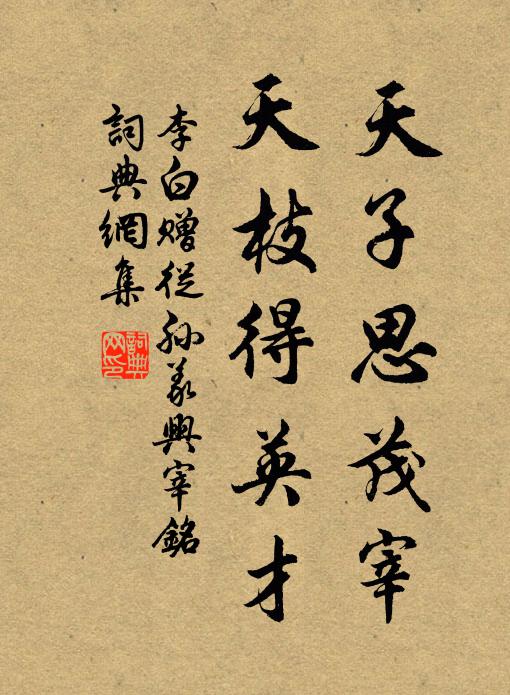 天子思茂宰
天枝得英才
李白赠從孙義興宰銘
詞典網集
詞典網印